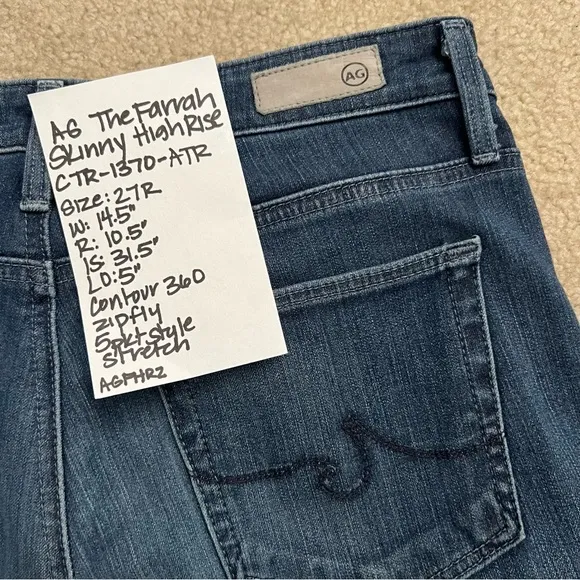 AG
AG The Farrah
Skinny High Rise
CTR-1370-ATR
Size: 27R
W: 14.5"
R: 10.5"
IS: 31.5"
LO: 5"
Contour 360
zip fly
5 pkt style
stretch
AGFHR2